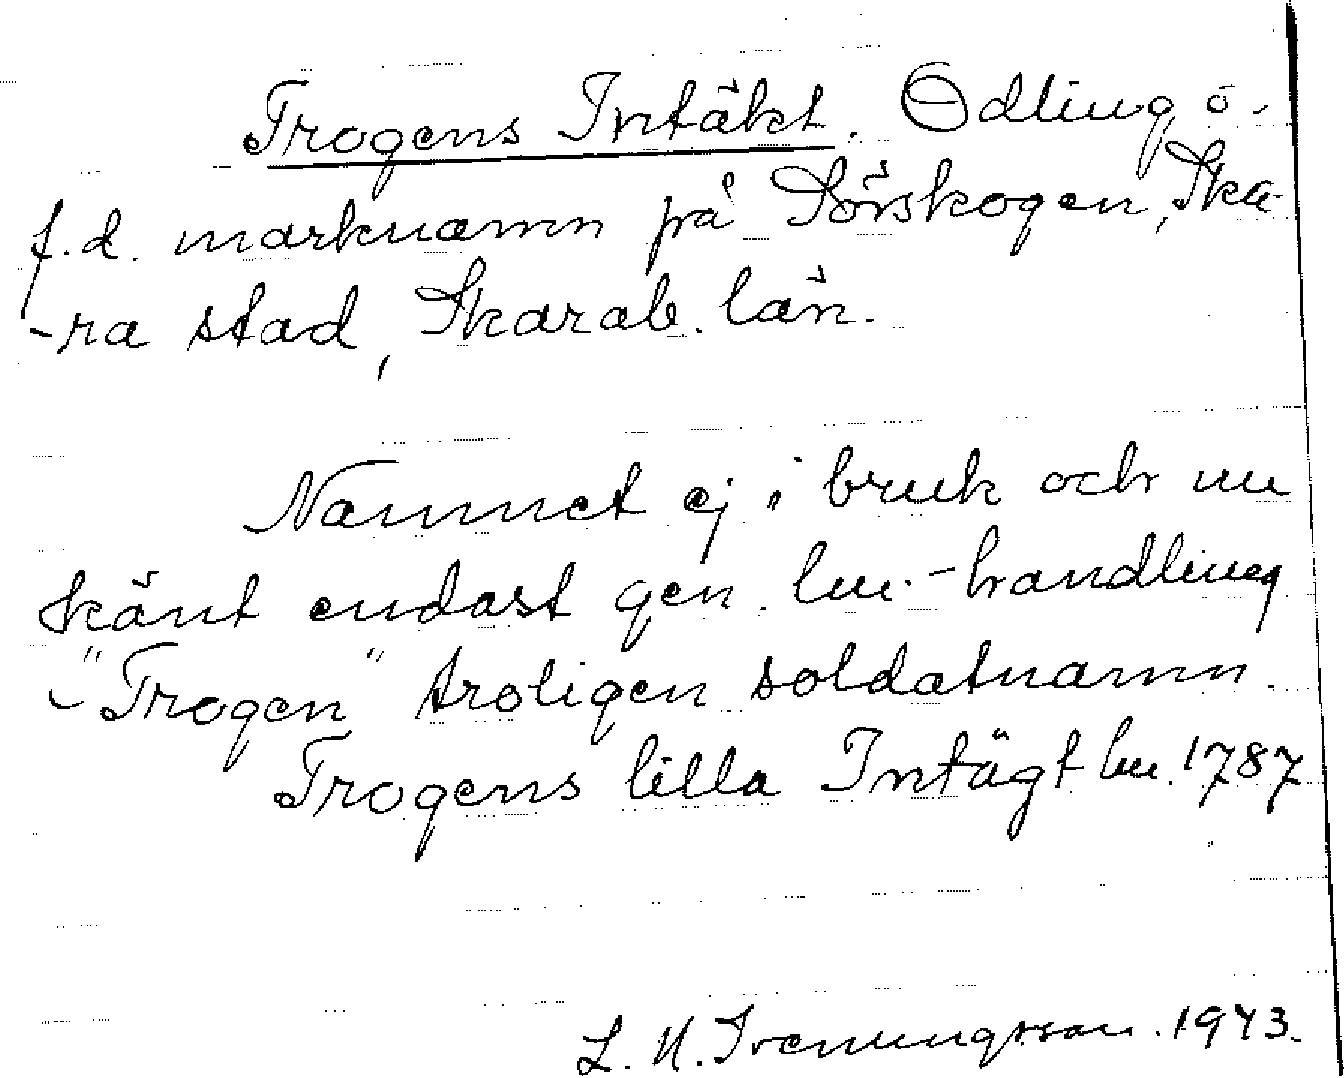 Trogens Intäkt. Odling o.
f.d. marknamn på Sörskogen, Ska-
-ra stad, Skarab. län.
Namnet ej i bruk och nu
känt endast gen. lm.-handling
- "Trogen" troligen soldatnamn.
Trogens lilla Intägt lm. 1787
L. N. 1943.